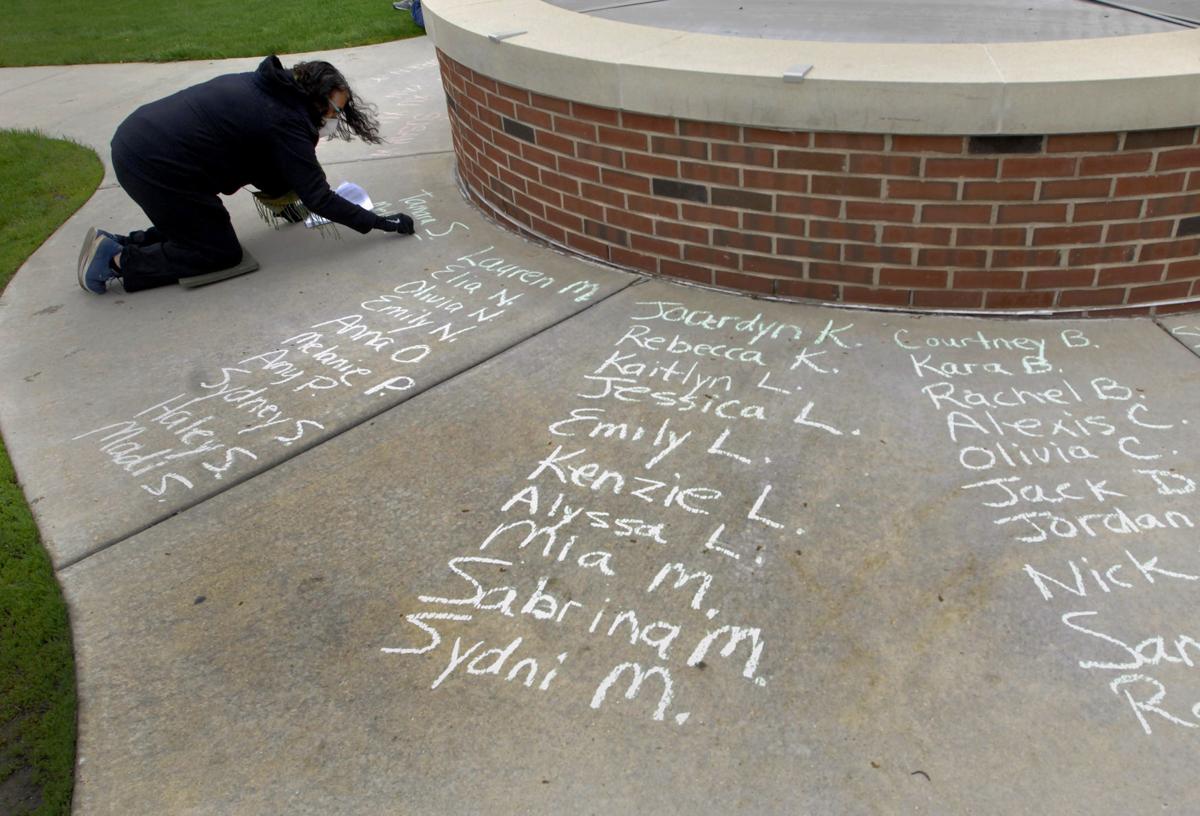 Tamra S.
Lauren M.
Elia N.
Olivia N.
Emily N.
Anna O.
Melanie P.
Any P.
Sydney S.
Haley S.
Madi S.
Jacerdyn K.
Rebecca K.
Kaitlyn L.
Jessica L.
Emily L.
Kenzie L.
Alyssa L.
Mia M.
Sabrina M.
Sydni M.
Courtney B.
Kara B.
Rachel B.
Alexis C.
Olivia C.
Jack D
Jordan
Nick